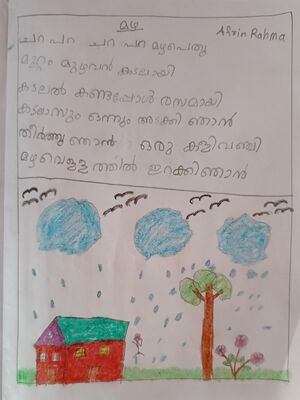 മഴ
Afrin Rahma
ചറ പറ ചറ പറ മഴപെയ്തു
മുറ്റം മുഴുവൻ കടലായി
കടലൽ കണ്ടപ്പോൾ രസമായി
കടലാസും ഒന്നും അടക്കി ഞാൻ
തീർത്തു ഞാൻ ഒരു കളിവഞ്ചി
മഴവെള്ളത്തിൽ ഇറക്കിഞാൻ